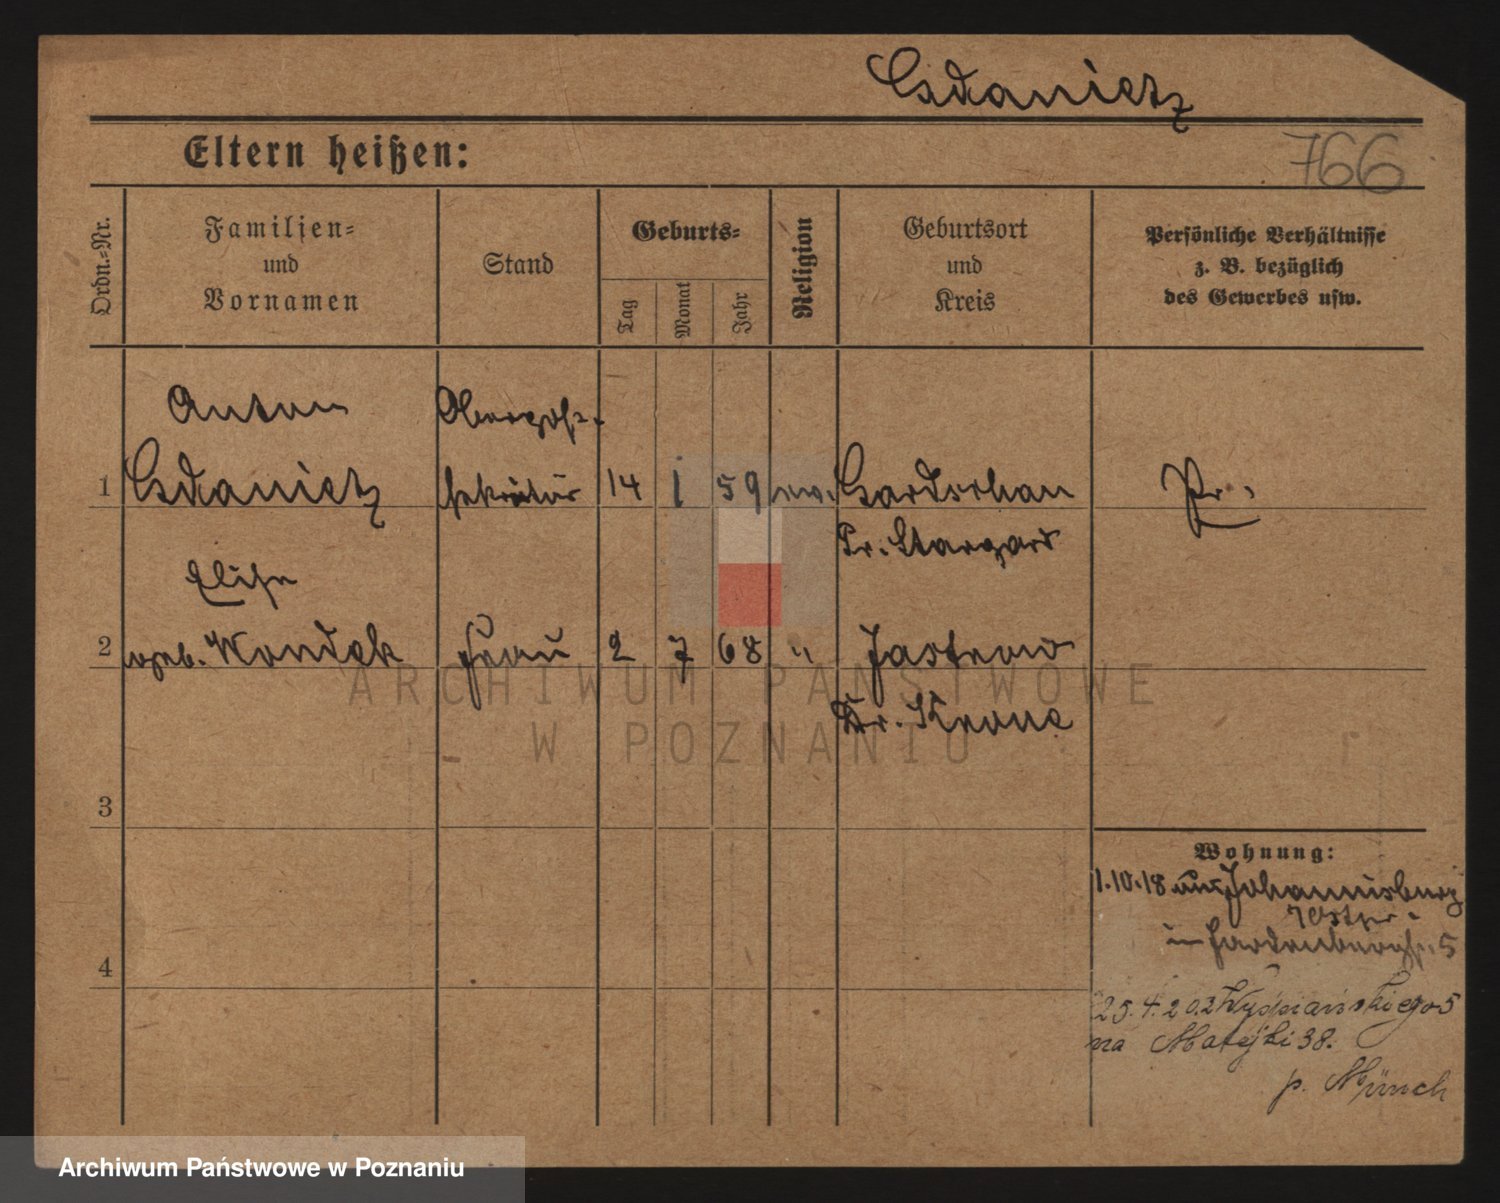 Czdanietz
766
Eltern heißen:
Ordn.-Nr.
Familien-
und
Vornamen
Stand
Geburts-
Tag
Monat
Jahr
Religion
Geburtsort
und
Kreis
Persönliche Verhältnisse
z. B. bezüglich
des Gewerbes usw.
Anton
Oberpost-
1 Czdanietz sekretär 14 1 59 ev. Pr.
Pr. Stargard
Elise
2 geb. Frau 2 7 68 " Jastrow
Kr. Krone
3
4
Wohnung:
1.10.18 aus Johannisburg
Ostpr.
in Hardenbergstr. 5
25.4.20 z Wyspiańskiego 5
na Matejki 38.
p. Münch
ARCHIWUM PAŃSTWOWE
W POZNANIU
Archiwum Państwowe w Poznaniu